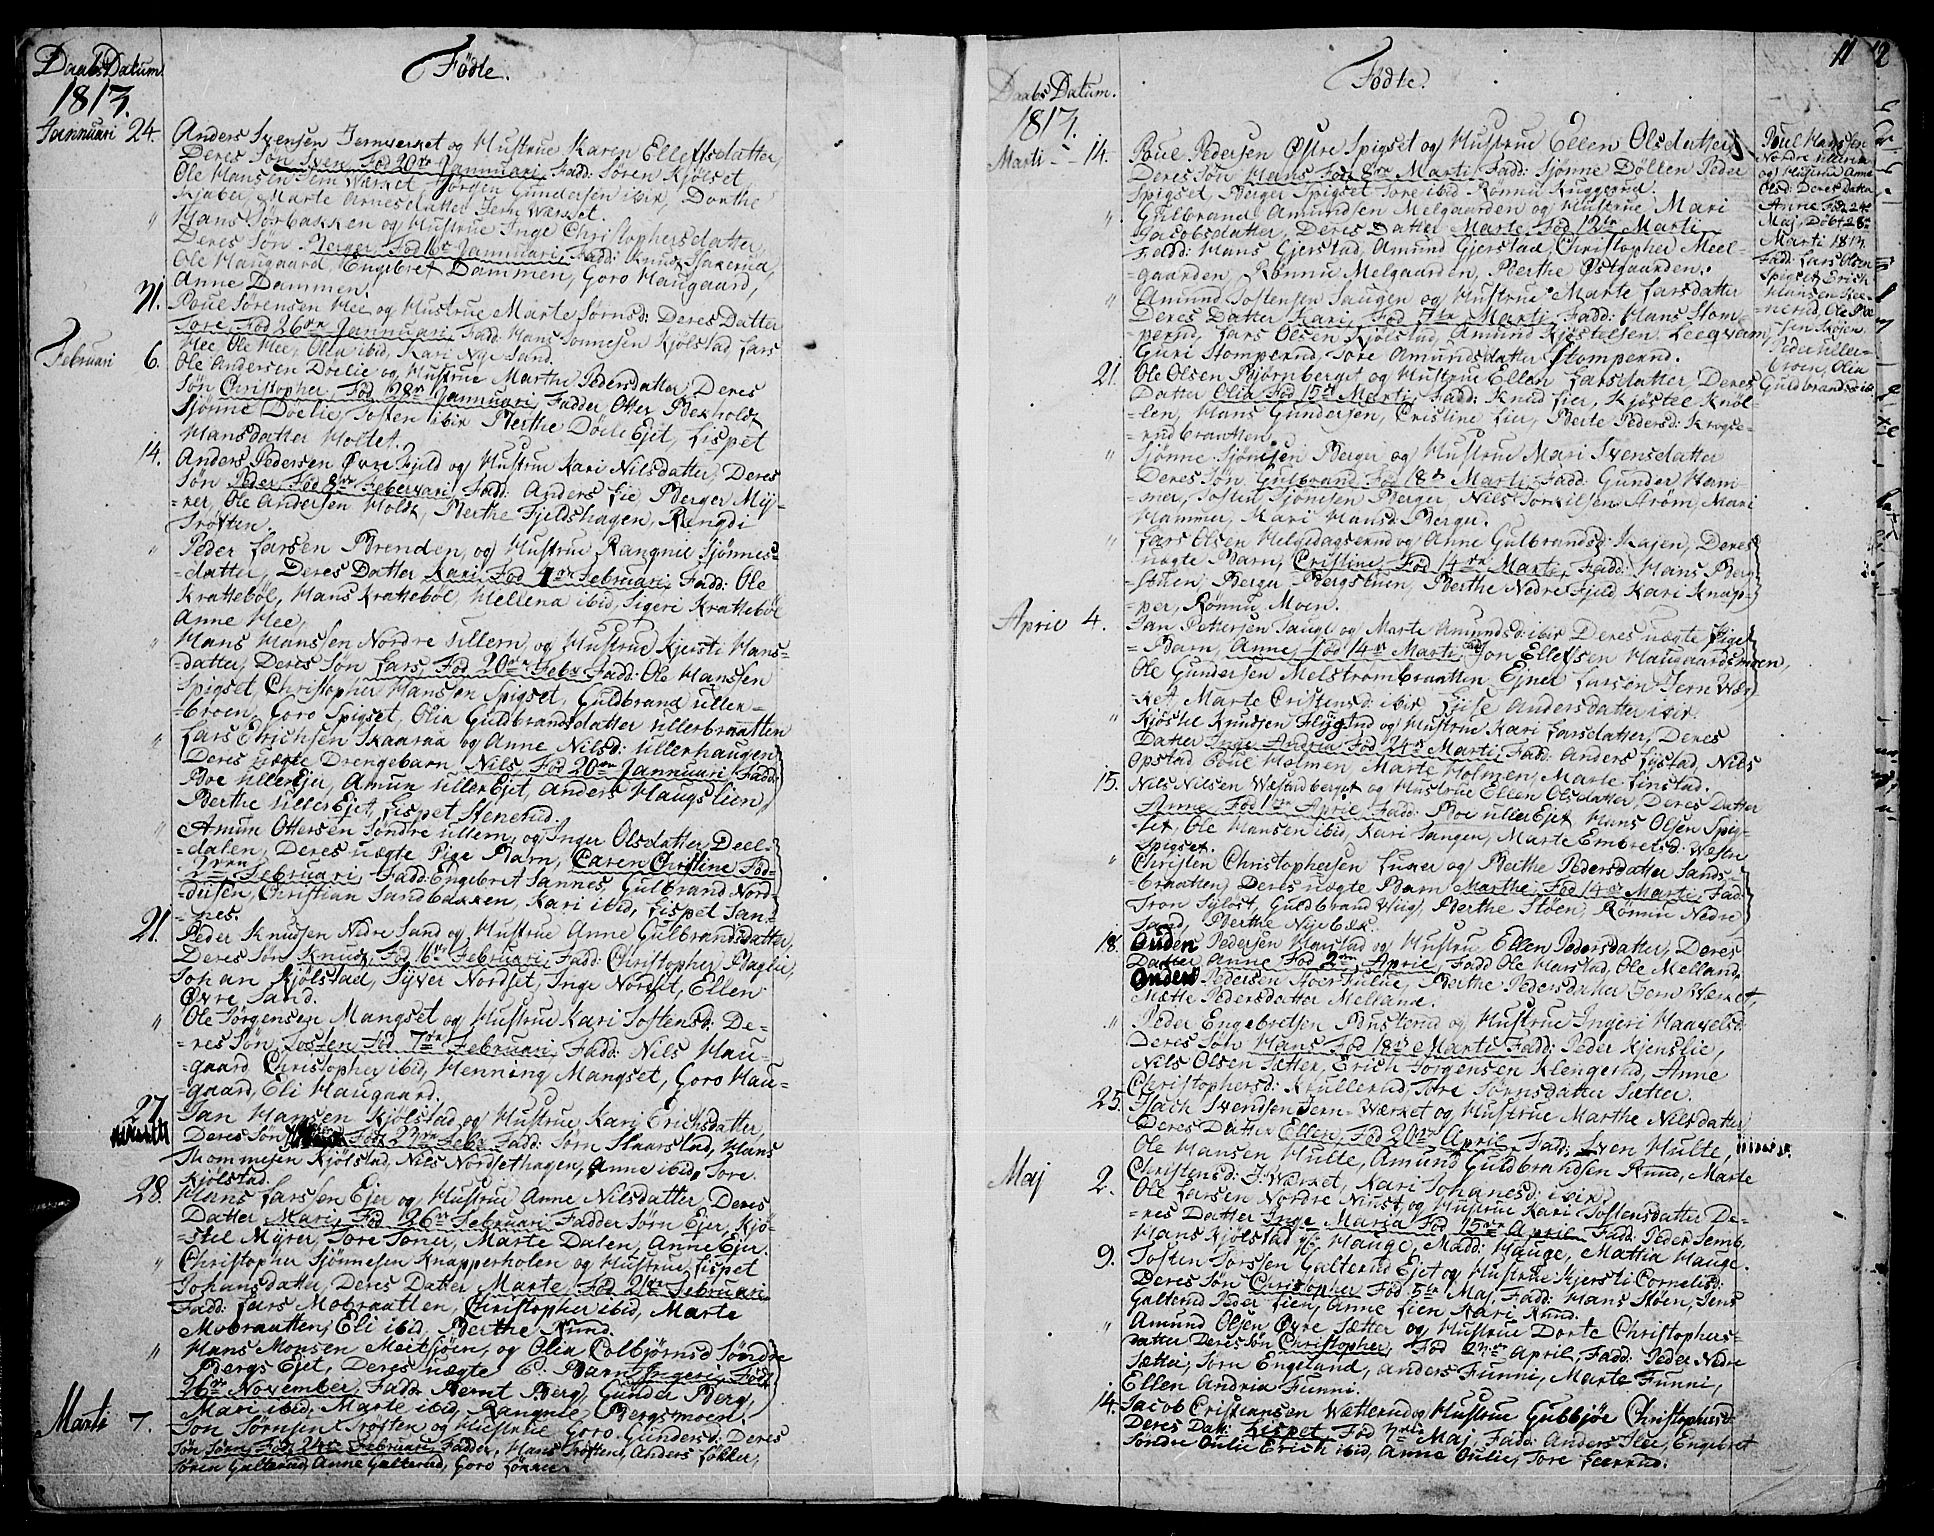 Daabs Datum
Födte.
1813.
Jannuari 24.
Anders Svensen Jernverket og Hustrue Karen Ellefsdatter,
Deres Søn Sven, Fød 20de Jannuari, Fadd: Søren Kjölset
Ole Hansen Jern Wærket Jörgen Gundersen ibid, Dorthe
Marte Arnesdatter Jern Wærket.
" Hans Torbakken og Hustrue Inge Christophersdatter,
Deres Søn Berger, Fød 16de Jannuari, Fadd: Knud
Ole Haugaard, Engebret Dammen, Goro Haugaard,
Anne Dammen.
31. Poul Sørensen Mee og Hustrue Marte Sørnsd: Deres Datter
Tore, Fød 26de Jannuari, Fadd: Hans Tønnesen Kjölstad Lars
Mee Ole Mee, Olia ibid, Kari Nye Sand.
Februari 6. Ole Andersen Dölie og Hustrue Marthe Pedersdatter, Deres
Søn Christopher, Fød 28de Jannuari, Fadder, Otter
Sjønne Dölie, Tosten ibid Berthe Dölie Ejet, Lispet
Hansdatter Holtet.
14. Anders Pedersen Øvre Fjeld og Hustrue Kari Nilsdatter, Deres
Søn Peder, Fød 8de Februari, Fadd: Anders Lie Berger My-
=rer, Ole Andersen Holdt, Berthe Fjeldshagen, Rangdi
Trøften.
" Peder Larsen Brenden, og Hustrue Rangnil Sjønnes-
=datter, Deres Datter Kari, Fød 1de Februari, Fadd: Ole
Kratteböl, Hans Kratteböl, Hellena ibid, Sigeri Kratteböl
Anne Mee,
" Hans Hanssen Nordre Ullern, og Hustrue Kjersti Hans-
=datter, Deres Søn Lars, Fød 20de Febr Fadd: Ole Hanssen
Spigset, Christopher Hansen Spigset, Guldbrand Uller-
=broen, Goro Spigset, Olia Guldbrandsdatter Ullerbraatten
" Lars Erichsen Skaaraa og Anne Nilsd: Ullerhaugen
Deres uægte Drengebarn, Nils Fød 20de Jannuari, Fadd:
Boe UllerEje, Amun Uller Ejet, Anders Haugslien,
Berthe UllerEjet, Lispet Stenerud.
" Amun Ottersen Søndre Ullern, og Inger Olsdatter, Deel-
=dalen, Deres uægte Pige Barn, Caren Christine Fød
2den Februari, Fadd: Engebret Sannes, Gulbrand Nord-
=dusen, Christian Sandbakken, Kari ibid, Lispet San-
=nes.
21. Peder Knudsen Nedre Sand og Hustrue Anne Gulbrandsdatter,
Deres Søn Knud, Fød 16de Februari, Fadd: Christopher Baglie,
Johan Kjölstad, Syver Nordset, Inge Nordset, Ellen
Øvre Sand.
" Ole Jørgensen Mangset og Hustrue Kari Tostensd: De-
=res Søn, Tosten Fød 7de Februari, Fadd: Nils Hau-
=gaard, Christopher ibid, Henning Mangset, Goro Hau-
=gaard, Eli Haugaard.
27. Jan Hansen Kjölstad og Hustrue Kari Erichsdatter,
Deres Søn Fød 23de Febr Fadd: Sørn Skaarstad, Hans
Thommesen Kjölstad, Nils Nordsethagen, Anne ibid, Tore
Kjölstad.
28. Hans Larssen Ejer og Hustrue Anne Nilsdatter, Deres
Datter Mari, Fød 26de Februari, Fadder Sørn Ejer, Kjø-
=stel Myrer, Tore Toner, Marte Dalen, Anne Ejer.
" Christopher Sjønnesen Knapperholen og Hustrue, Lispet
Johansdatter, Deres Datter, Marte, Fød 21de Februari
Fadd: Lars Mobraatten, Christopher ibid, Marte
Mobraatten, Eli ibid, Berthe Rund.
" Hans Monsen Meitsjøen, og Olia Colbjørnsd: Søndre
Bergs Ejet, Deres uægte P. Barn, Ingeri, Fød
26de November, Fadd: Bernt Berg, Gunder Berg,
Mari ibid, Marte ibid, Rangnil Bergsmoen.
Marti 7. Jon Sørnsen Trøften og Hustrue Goro Gundersd: Deres
Søn Sørn, Fød 24de Februari, Fadder, Hans Trøften, Anders Løkker,
Søren Galterud, Anne Galterud, Goro Løkker.
Daabs Datum.
Födte.
11
1813.
Marti 14. Poul Pedersen Østre Spigset og Hustrue Ellen Olsdatter
Deres Søn Hans Fød 8de Marti, Fadd: Sjønne Döllen Peder
Spigset, Berger Spigset Tore ibid Rønnu Kuggerud.
" Gulbrand Amundsen Melgaarden og Hustrue, Mari
Jacobsdatter, Deres Datter Marte, Fød 12te Marti
Fadd: Hans Gjerstad, Amund Gjerstad, Christopher Meel-
=gaarden, Rønnu Melgaarden, Berthe Østgaarden.
" Amund Tostensen Haugen og Hustrue Marte Larsdatter
Deres Datter Kari, Fød 7de Marti, Fadd: Hans Stom-
=perud, Lars Olsen Kjölstad, Amund Kjøstelsen Leeqvam,
Guri Stomperud, Tore Amundsdatter Stomperud.
21. Ole Olsen Bjørnberget og Hustrue Ellen Larsdatter, Deres
Datter Olia Fød 15de Marti, Fadd: Knud Lier, Kjøstel Knöl-
=len, Hans Gundersen, Cristine Lier, Berte Pedersd: Krogse-
=rudbraatten.
" Sjønne Sjønesen Berger og Hustrue Mari Svensdatter
Deres Søn, Gulbrand, Fød 18de Marti, Fadd: Gunder Ham-
mer, Tosten Sjønesen Berger, Nils Torkilsen Strøm, Mari
Hammer, Kari Hansd: Berger.
" Lars Olsen Helgedagserud og Anne Gulbrandsd: Kajen, Deres
uægte Barn, Cristine, Fød 14de Marti, Fadd: Hans Berg-
=stuen, Berger Bergstuen, Berthe Nedre Fjeld, Kari Knap-
=per, Rønnu Moen.
April 4. Jan Pettersen Haugl og Marte Amundsd: ibid Deres uægte Pige
Barn, Anne, Fød 14de Marti, Fadd: Jon Ellefsen Haugaardsmoen,
Ole Gundersen Melstrømbraatten, Ejner Larsen Jern Wær-
ket, Marte Cristensd: ibid, Lise Andersdatter ibid.
" Kjøstel Knudsen Flygind og Hustrue Kari Larsdatter, Deres
Datter Inge Andria Fød 24de Marti, Fadd: Anders Lystad, Nils
Opstad Poul Holmen, Marte Holmen, Marte Finstad.
15. Nils Nilsen Wæstadberget og Hustrue Ellen Olsdatter, Deres Datter
Anne, Fød 1de April, Fadd: Boe Uller Ejet, Hans Olsen Spig-
=set, Ole Hansen ibid, Kari Haugen, Marte Embretsd: Westre
Spigset.
" Christen Christophersen Luxer og Berthe Pedersdatter Sands-
=braatten, Deres uægte Barn Marthe, Fød 14de Marti, Fadd:
Tron Syløst, Guldbrand Wiig, Berthe Støen, Rønnu Nedre
Sand, Berthe Nyebek.
18. Auden Pedersen Harstad og Hustrue Ellen Pedersdatter, Deres
Datter Anne Fød 2den April, Fadd Ole Harstad, Ole Melland,
Anders Pedersen Storkulue, Berthe Pedersdatter Jern Wærket,
Mætte Pedersdatter Melland.
" Peder Engebretsen Busterud og Hustrue Ingeri Haavelsd:
Deres Søn Hans Fød 18de Marti Fadd: Peder Kjenslie,
Nils Olsen Sætter, Erich Jørgensen Klengerud, Anne
Christophersd: Krullerud, Tore Sørnsdatter Sætter.
25. Isach Svendsen Jern-Wærket og Hustrue Marthe Nilsdatter,
Deres Datter Ellen, Fød 20de April, Fadd: Sven Hulte,
Ole Hansen Hulte, Amund Guldbrandsen Rund, Marte
Christensd: J: Wærket, Kari Johanesd: ibid.
Maj 2. Ole Larsen Nordre Niust, og Hustrue Kari Tostensdatter De-
=res Datter Inge Maria Fød 15de April, Fadd: Peder Semb,
Hans Kjölstad Hauge, Madd: Hauge, Mattia Hauge.
9. Tosten Torssen Galterud Ejet og Hustrue Kjersti Cornelisd:
Deres Søn Christopher Fød 5te Maj, Fadd: Hans Støen, Jens
Galterud, Peder Lien, Anne Lien Kari Rund.
" Amund Olsen Øvre Sætter og Hustrue Dorte Christophers-
datter Deres Søn Christopher, Fød 23de April, Fadd: Peder Nedre
Sætter, Sørn Engelund, Anders Funni, Marte Funni,
Ellen Andria Funni.
14. Jacob Cristiansen Wætterud og Hustrue Gubbjør Christophersd:
Deres Datt: Lispet, Fød 7de Maj, Fadd: Anders Ilse, Engebret
Søndre Oulie Erich ibid, Anne Oulie, Tore Leerrud.
Poul Hanssen
Nordre Ullern
og Hustrue Anne
Olsd: Deres Datter
Anne Fød 24
Maj, Døbt 28de
Marti 1813.
Fadd: Lars Olsen
Spigset Erich
Hansen Ree-
nerud, Ole Po-
lsen Skøjen,
Peder Uller-
broen, Olia
Guldbrandsd ib.